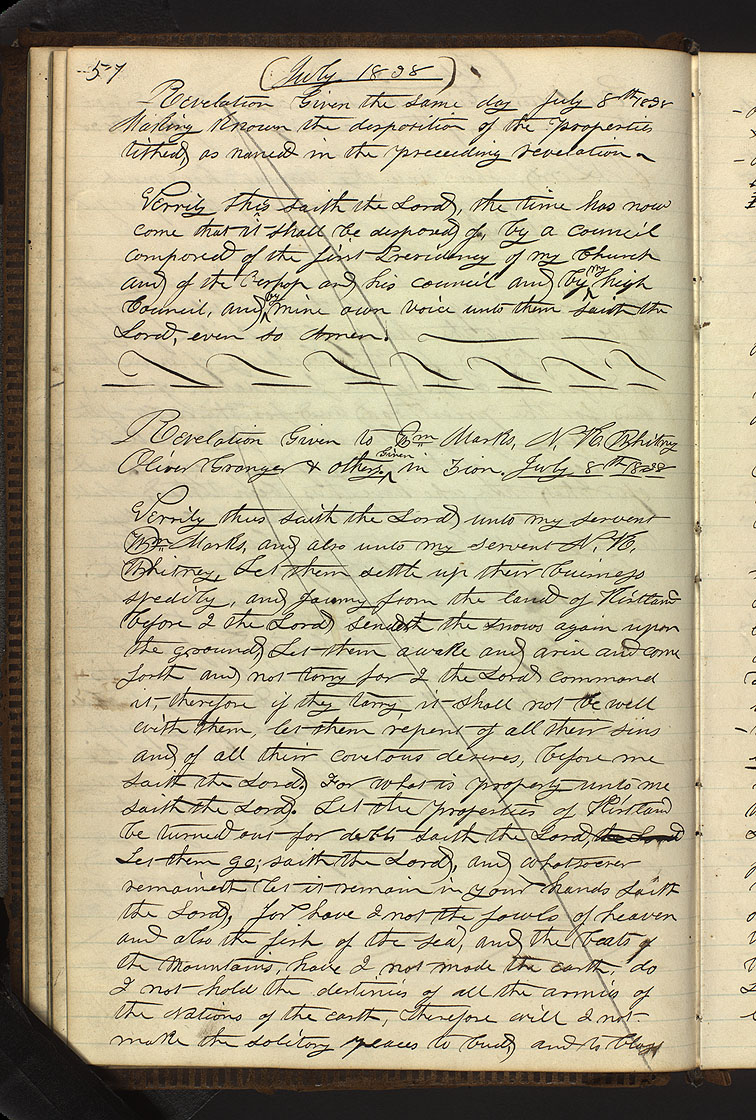 57
(July 1838)
Revelation Given the same day July 8th 1838
Making known the disposition of the properties
tithed, as named in the preceeding revelation~
Verrily thus saith the Lord, the time has now
come that it shall be disposed of, by a council
composed of the first Presidency of my Church
and of the Bishop and his council and by my high
Council, and by mine own voice unto them saith the
Lord, even so Amen.
Revelation Given to Wm Marks, N. K. Whitney
Oliver Granger & others. Given in Zion, July 8th 1838
Verrily thus saith the Lord unto my servent
Wm Marks, and also unto my servent N. K.
Whitney, Let them settle up their buisness
spedily, and journy from the land of Kirtland
before I the Lord sendeth the snows again upon
the ground, Let them awake and arise and come
forth and not tarry for I the Lord command
it, therefore if they tarry, it shall not be well
with them, let them repent of all their sins
and of all their covetous desires, before me
saith the Lord, For what is property unto me
saith the Lord. Let the properties of Kirtland
be turned out for debts saith the Lord, the Lord
Let them go; saith the Lord, and whatsoever
remaineth let it remain in your hands saith
the Lord, for have I not the fowls of heaven
and also the fish of the sea, and the beats of
the Mountains, have I not made the earth, do
I not hold the destinies of all the armies of
the Nations of the earth, therefore will I not
make the solitary places to bud, and to bloss